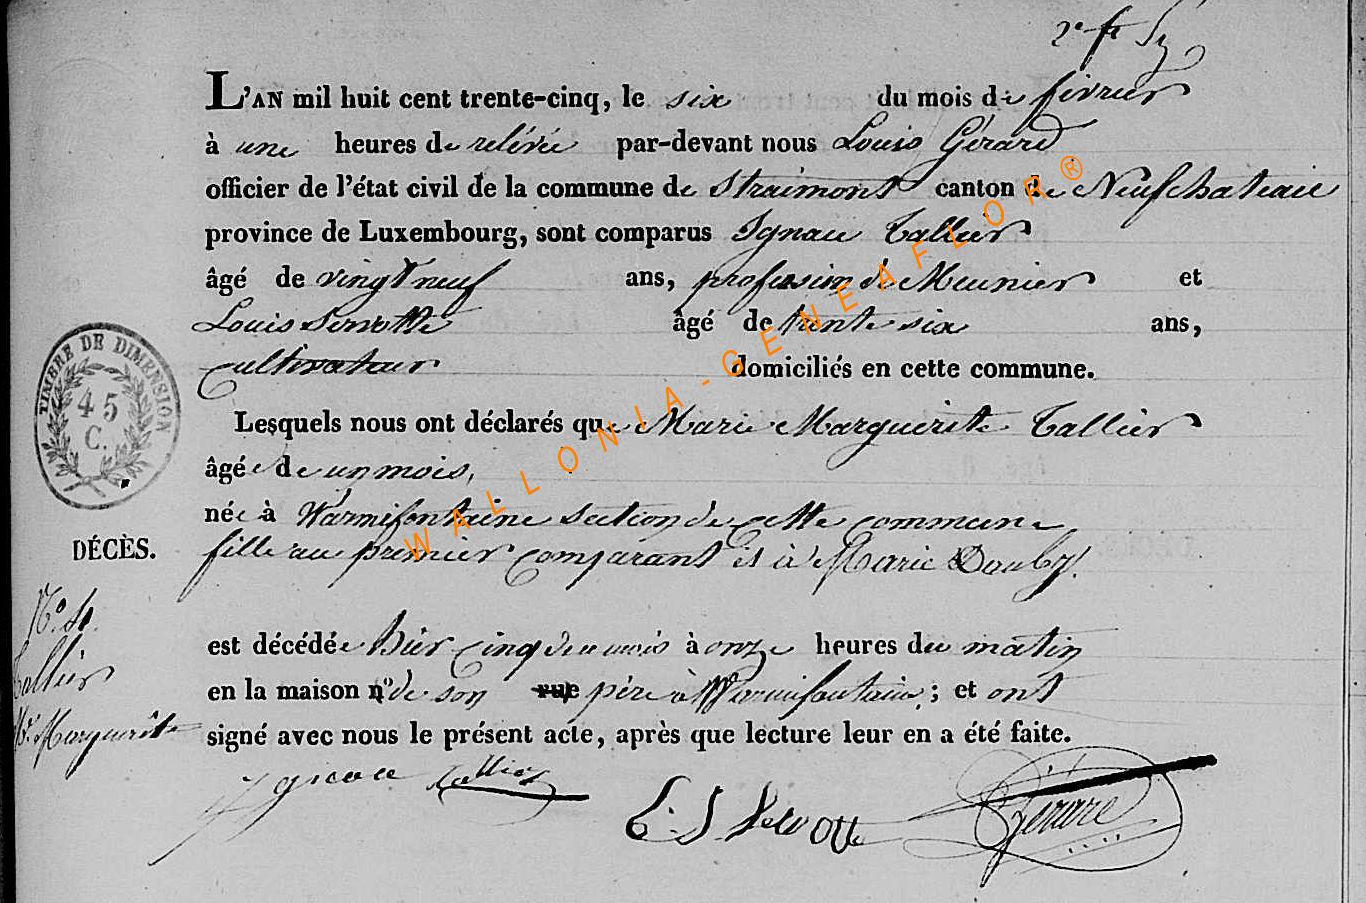 L'AN mil huit cent trente-cinq, le six du mois de fevrier
à une heures de relévée par-devant nous Louis Gérard
officier de l'état civil de la commune de Straimont canton de Neufchateau
province de Luxembourg, sont comparus Ignace Tallier
âgé de vingt neuf ans, profession de Meunier et
Louis âgé de trente six ans,
cultivateur domiciliés en cette commune.
Lesquels nous ont déclarés que Marie Marguerite Tallier
âgée de un mois,
née à Warmifontaine section de cette commune,
fille au premier comparant et à Marie
DÉCÈS.
est décédée hier cinq du mois à onze heures du matin
en la maison n° de son rue père à Warmifontaine; et ont
signé avec nous le présent acte, après que lecture leur en a été faite.
Ignace Tallier
Gérard
N° 4.
Tallier
Mie Marguerite
TIMBRE DE DIMENSION
45
C.
WALLONIA-GENEAFLOR®